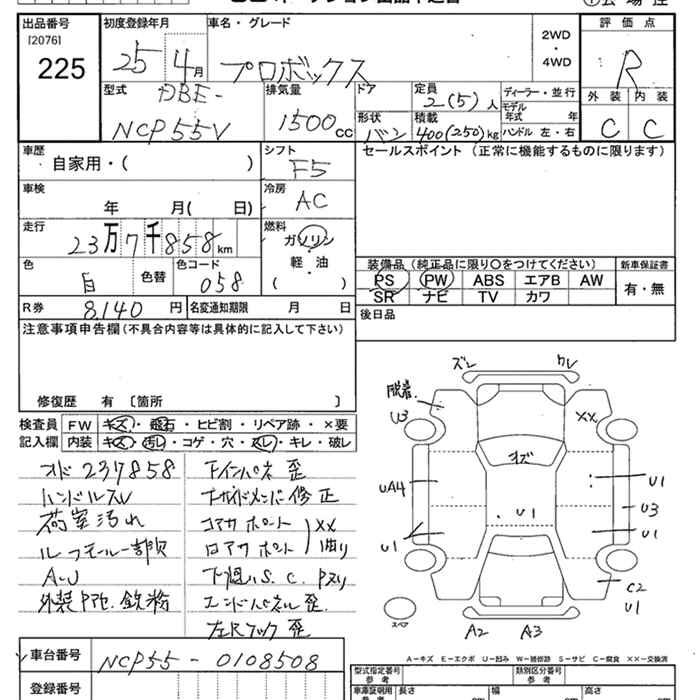 出品番号 初度登録年月 車名・グレード 評価点
[2076]
225 25 4月 プロボックス 2WD・4WD R
型式 DBE-
NCP55V
排気量 1500cc
ドア
形状 バン
定員 2(5)人
積載 400(250)kg
ディーラー・並行
モデル年式 年
ハンドル 左・右
外装 内装
C C
車歴 自家用・( )
シフト F5
セールスポイント (正常に機能するものに限ります)
車検 年 月( 日)
冷房 AC
走行 23万7千858km
燃料 ガソリン
軽・油
( ・ )
色 白 色替
色コード 058
装備品(純正品に限り○をつけてください) 新車保証書
PS PW ABS エアB AW 有・無
SR ナビ TV カワ
R券 8,140円 名変通知期限 月 日 後日品
注意事項申告欄(不具合内容等は具体的に記入して下さい)
修復歴 有 〔箇所 〕
検査員記入欄
FW キズ・飛石・ヒビ割・リペア跡・×要
内装 キズ・汚レ・コゲ・穴・スレ・キレ・破レ
オド 237858
ハンドルスレ
荷室汚れ
ルーフモール一部欠
A-U
外装 鉄粉
インパネ 歪
サイドメンバー 修正
コアサポート ××
ロアサポート 曲り
下廻りS.C.Pヌリ
エンドパネル歪
左Rフック歪
ズレ ワレ
脱着
U3 ××
キズ
UA4 U1
U3
U1 U1 U1
C2
U1
A2 A3
スペア
A-キズ E-エクボ U-凹み W-補修跡 S-サビ C-腐食 ××-交換済
車台番号 NCP55-0108508
登録番号
型式指定番号 類別区分番号
参考
車庫証明用 参考 長さ 幅 高さ